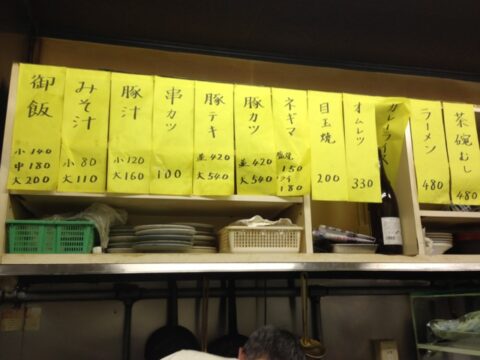 御飯
小 140
中 180
大 200
みそ汁
小 80
大 110
豚汁
小 120
大 160
串カツ
100
豚テキ
並 420
大 540
豚カツ
並 420
大 540
ネギマ
150
180
目玉焼
200
オムレツ
330
ラーメン
480
茶碗むし
480